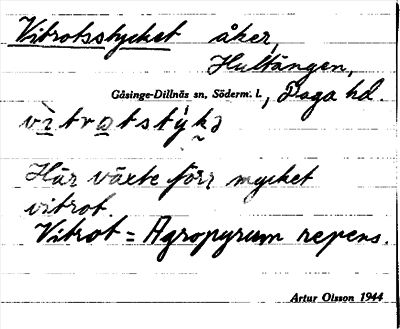 Vitrotsstycket åker,
Hultängen,
Gåsinge-Dillnäs sn, Söderm. l., Daga hd.
vitrotstýkə
Här växte förr mycket
vitrot.
Vitrot = Agropyrum repens.
Artur Olsson 1944